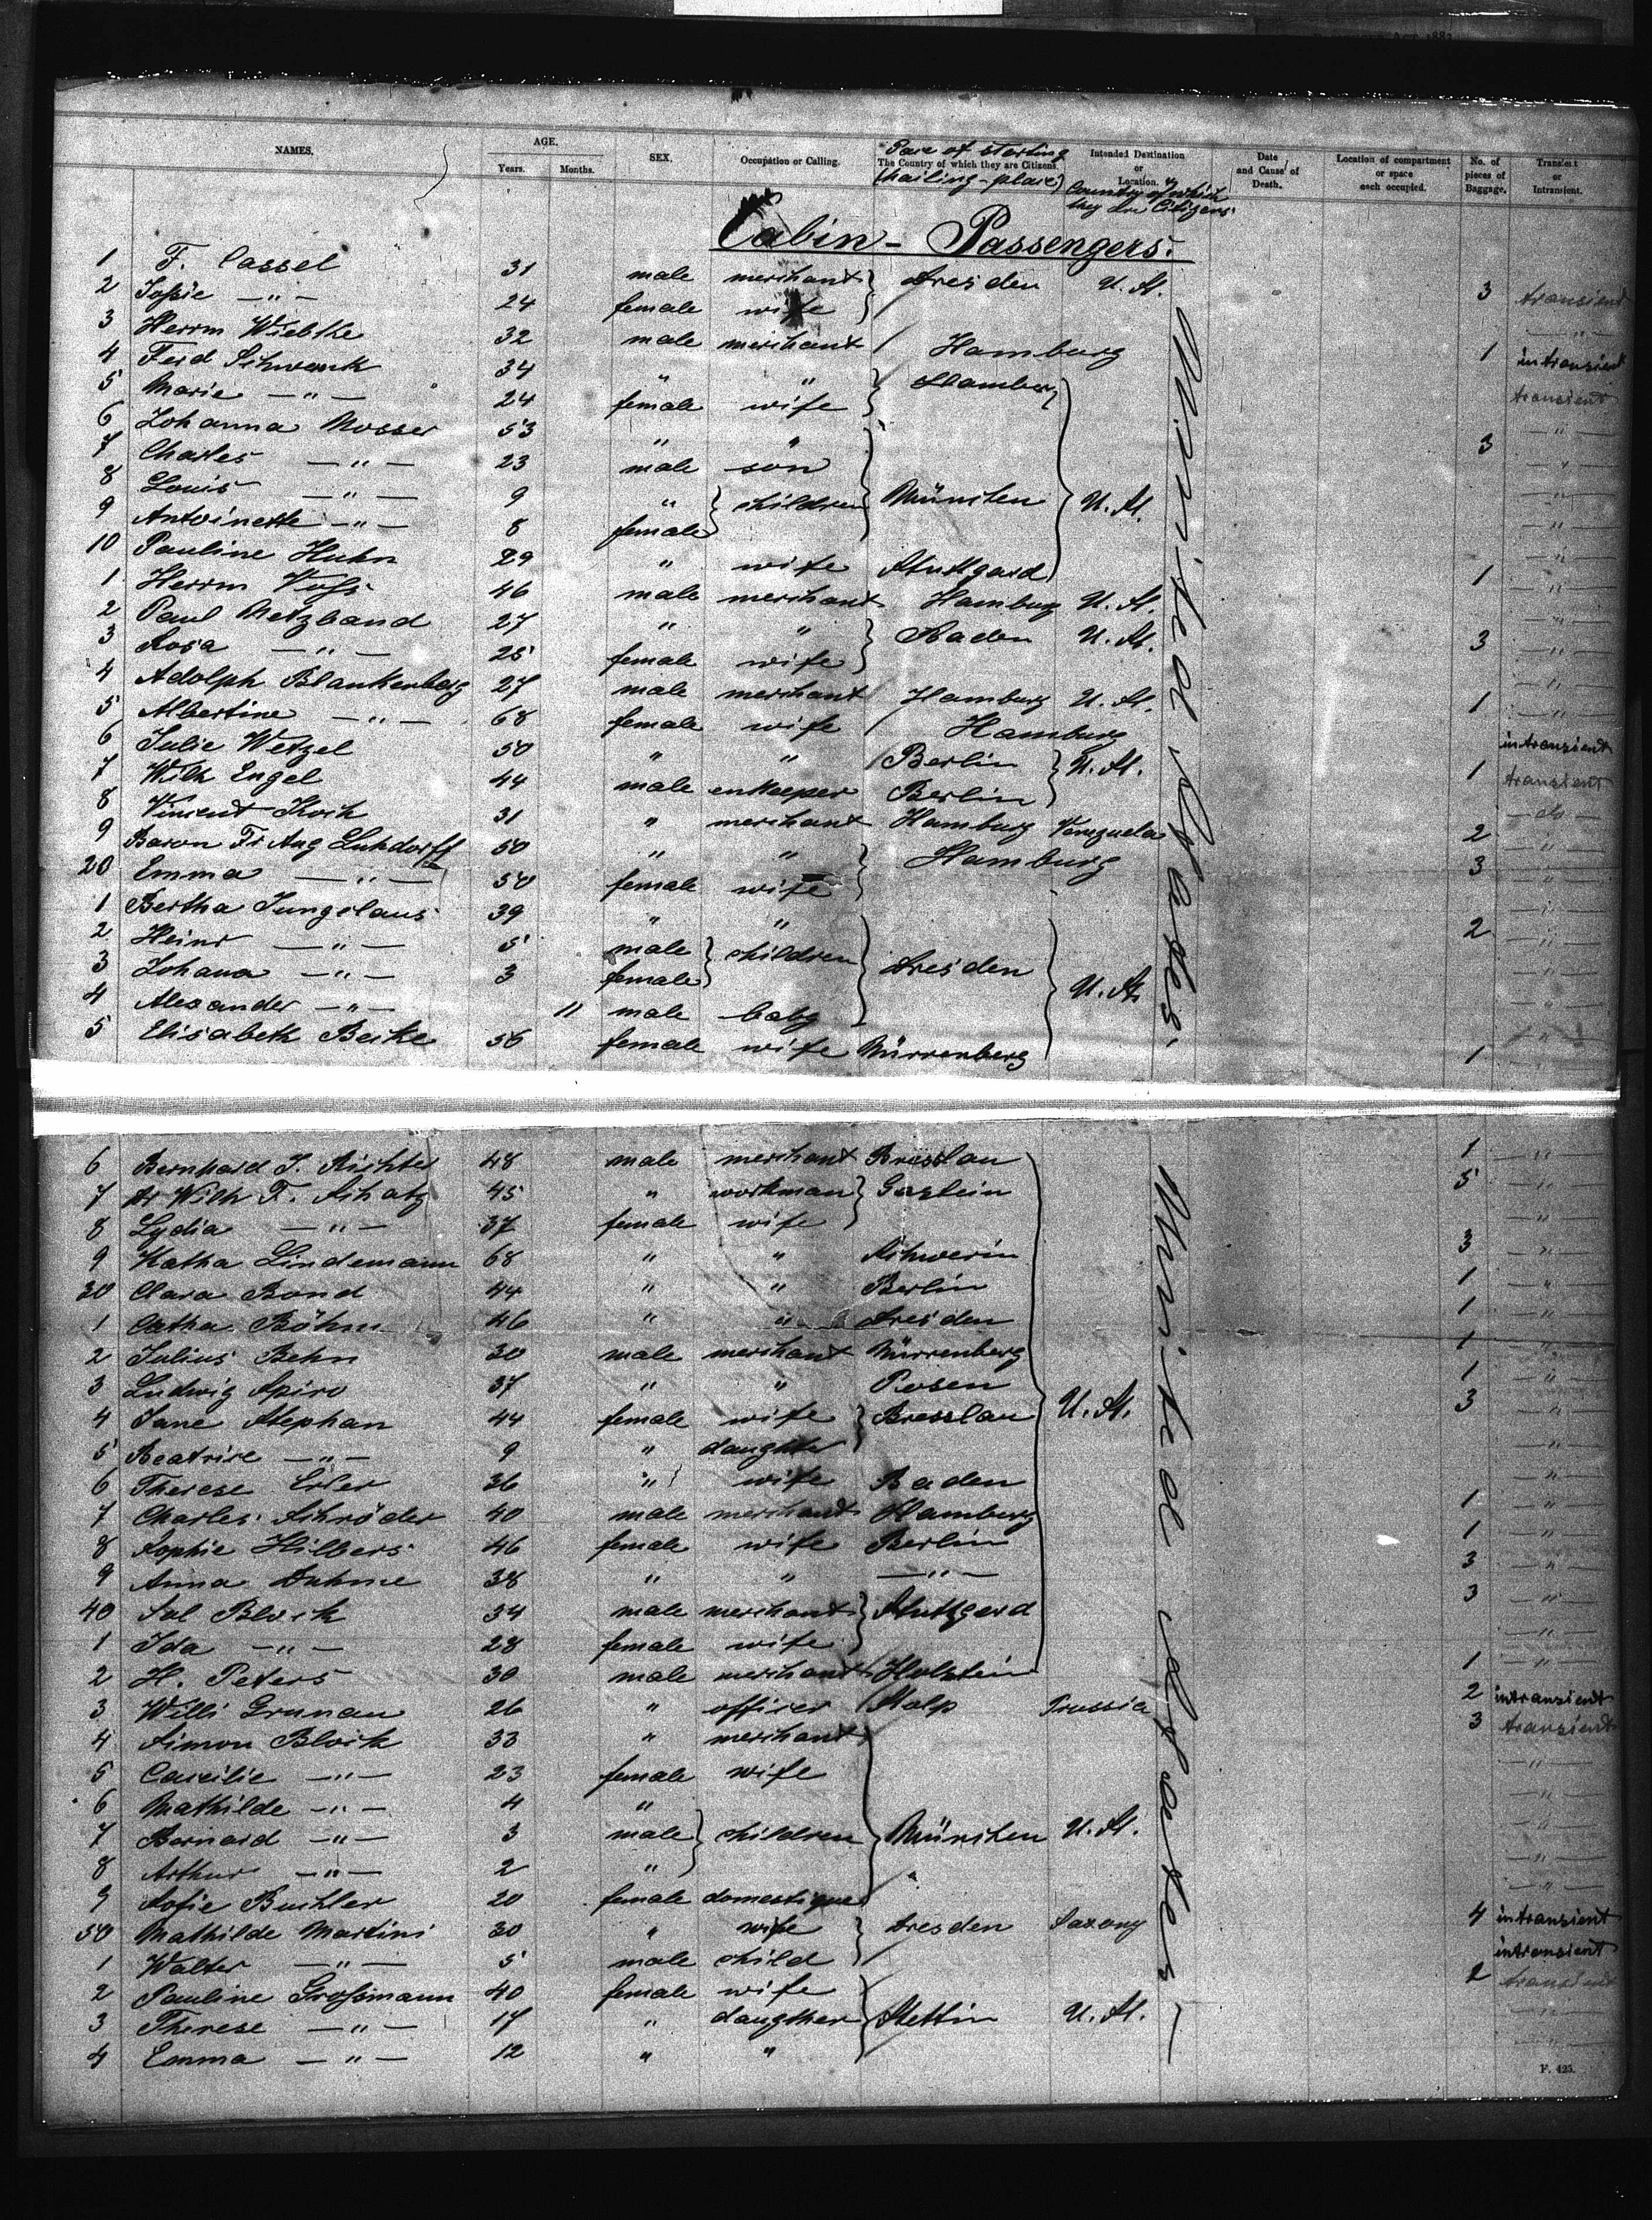 NAMES. AGE. SEX. Occupation or Calling. The Country of which they are Citizens. Intended Destination or Location. Date and Cause of Death. Location of compartment or space each occupied. No. of pieces of Baggage. Transient or Intransient.
Years. Months.
of starting
(hailing-place) Country of which they are Citizens
Cabin - Passengers.
1 F. Cassel 31 male merchant } Dresden U. St. 3 transient
2 Sofie —"— 24 female wife —"—
3 Herrm Wiebke 32 male merchant / Hamburg 1 intransient
4 Ferd Schwenk 34 " " } Hamburg transient
5 Marie —"— 24 female wife —"—
6 Johanna Mosser 53 " " 3 —"—
7 Charles —"— 23 male son —"—
8 Louis —"— 9 " } children München U. St. —"—
9 Antoinette —"— 8 female —"—
10 Pauline Huhn 29 " wife Stuttgard 1 —"—
1 Herrm Voss 46 male merchant Hamburg U. St. —"—
2 Paul Metzband 27 " " } Baden U. St. 3 —"—
3 Rosa —"— 25 female wife —"—
4 Adolph Blankenberg 27 male merchant Hamburg U. St. 1 —"—
5 Albertine —"— 68 female wife / Hamburg intransient
6 Julie Wetzel 50 " " Berlin } U. St. 1 transient
7 Wilh Engel 44 male Berlin —do—
8 Vincent Koch 31 " merchant Hamburg Venezuela 2 —"—
9 Baron Fr Aug Luhdorff 50 " " } Hamburg 3 —"—
20 Emma —"— 50 female wife —"—
1 Bertha Jungclaus 39 " " 2 —"—
2 Heinr —"— 5 male } children —"—
3 Johana —"— 3 female Dresden U. St. —"—
4 Alexander —"— 11 male baby —"—
5 Elisabeth Beike 56 female wife Nürrenberg 1 —"—
United States.
6 Bernhard J. Richter 48 male merchant Bresslau 1 —"—
7 Dr Wilh F. Schatz 45 " workman } Gastein 5 —"—
8 Lydia —"— 37 female wife —"—
9 Katha Lindemann 68 " " Schwerin 3 —"—
30 Clara Bond 44 " " Berlin 1 —"—
1 Catha Böhm 46 " " Dresden 1 —"—
2 Julius Behn 30 male merchant Nürrenberg 1 —"—
3 Ludwig Spiro 37 " " Posen 1 —"—
4 Jane Stephan 44 female wife } Bresslau U. St. 3
5 Beatrice —"— 9 " daughter —"—
6 Therese Erler 36 " wife Baden —"—
7 Charles Schröder 40 male merchant Hamburg 1 —"—
8 Sophie Hilbers 46 female wife Berlin 1 —"—
9 Anna Duhme 38 " " —"— 3 —"—
40 Sal Block 34 male merchant } Stuttgard 3 —"—
1 Ida —"— 28 female wife —"—
2 H. Peters 30 male merchant Holstein 1 —"—
3 Willi Grunau 26 " officer Stolp Prussia 2 intransient
4 Simon Block 33 " merchant 3 transient
5 Caecilie —"— 23 female wife —"—
6 Mathilde —"— 4 " —"—
7 Bernard —"— 3 male } children München U. St. —"—
8 Arthur —"— 2 " —"—
9 Sofie Buchler 20 female domestique —"—
50 Mathilde Martini 30 " wife } Dresden Saxony 4 intransient
1 Walter —"— 5 male child intransient
2 Pauline Grossmann 40 female wife 2 transient
3 Therese —"— 17 " daugther } Stettin U. St. —"—
4 Emma —"— 12 " " —"—
United States —
F. 425.